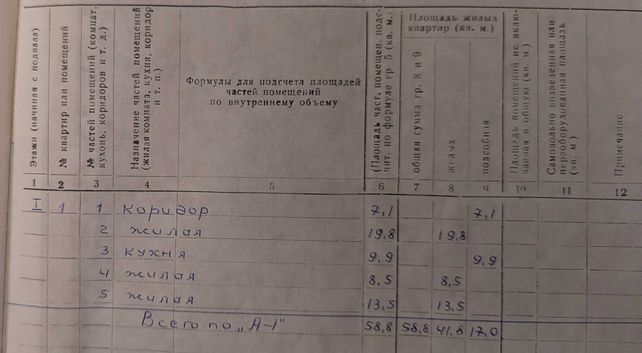 Этажи (начиная с подвала)
№ квартир или помещений
№ частей помещений (комнат, кухонь, коридоров и т. д.)
Назначение частей помещений (жилая комната, кухня, коридор и т. п.)
Формулы для подсчета площадей
частей помещений
по внутреннему объему
(Площадь част. помещен. подсчит. по формуле гр. 5 (кв. м.)
Площадь жилых
квартир (кв. м.)
общая сумма гр. 8 и 9
жилых
подсобная
Площадь помещений не включаемая в общую (кв. м)
Самовольно возведенная или переоборудованная площадь (кв. м)
Примечание
1 2 3 4 5 6 7 8 9 10 11 12
I 1 1 коридор 7,1 7,1
2 жилая 19.8 19.8
3 кухня 9,9 9,9
4 жилая 8,5 8,5
5 жилая 13,5 13,5
Всего по „А-1" 58,8 58,8 41.8 17.0